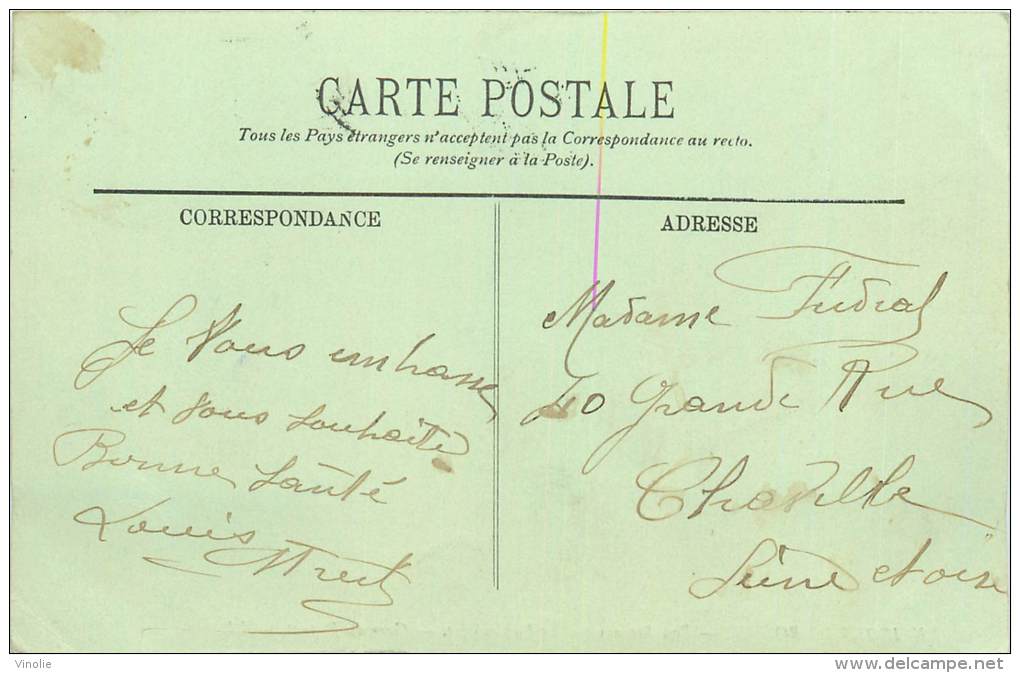 CARTE POSTALE
Tous les Pays étrangers n'acceptent pas la Correspondance au recto.
(Se renseigner à la Poste).
CORRESPONDANCE
Je Vous embrasse
et vous souhaite
Bonne Santé
Louis
ADRESSE
Madame
40 Grande Rue
Chaville
Seine et oise
Vinolie
delcampe.net